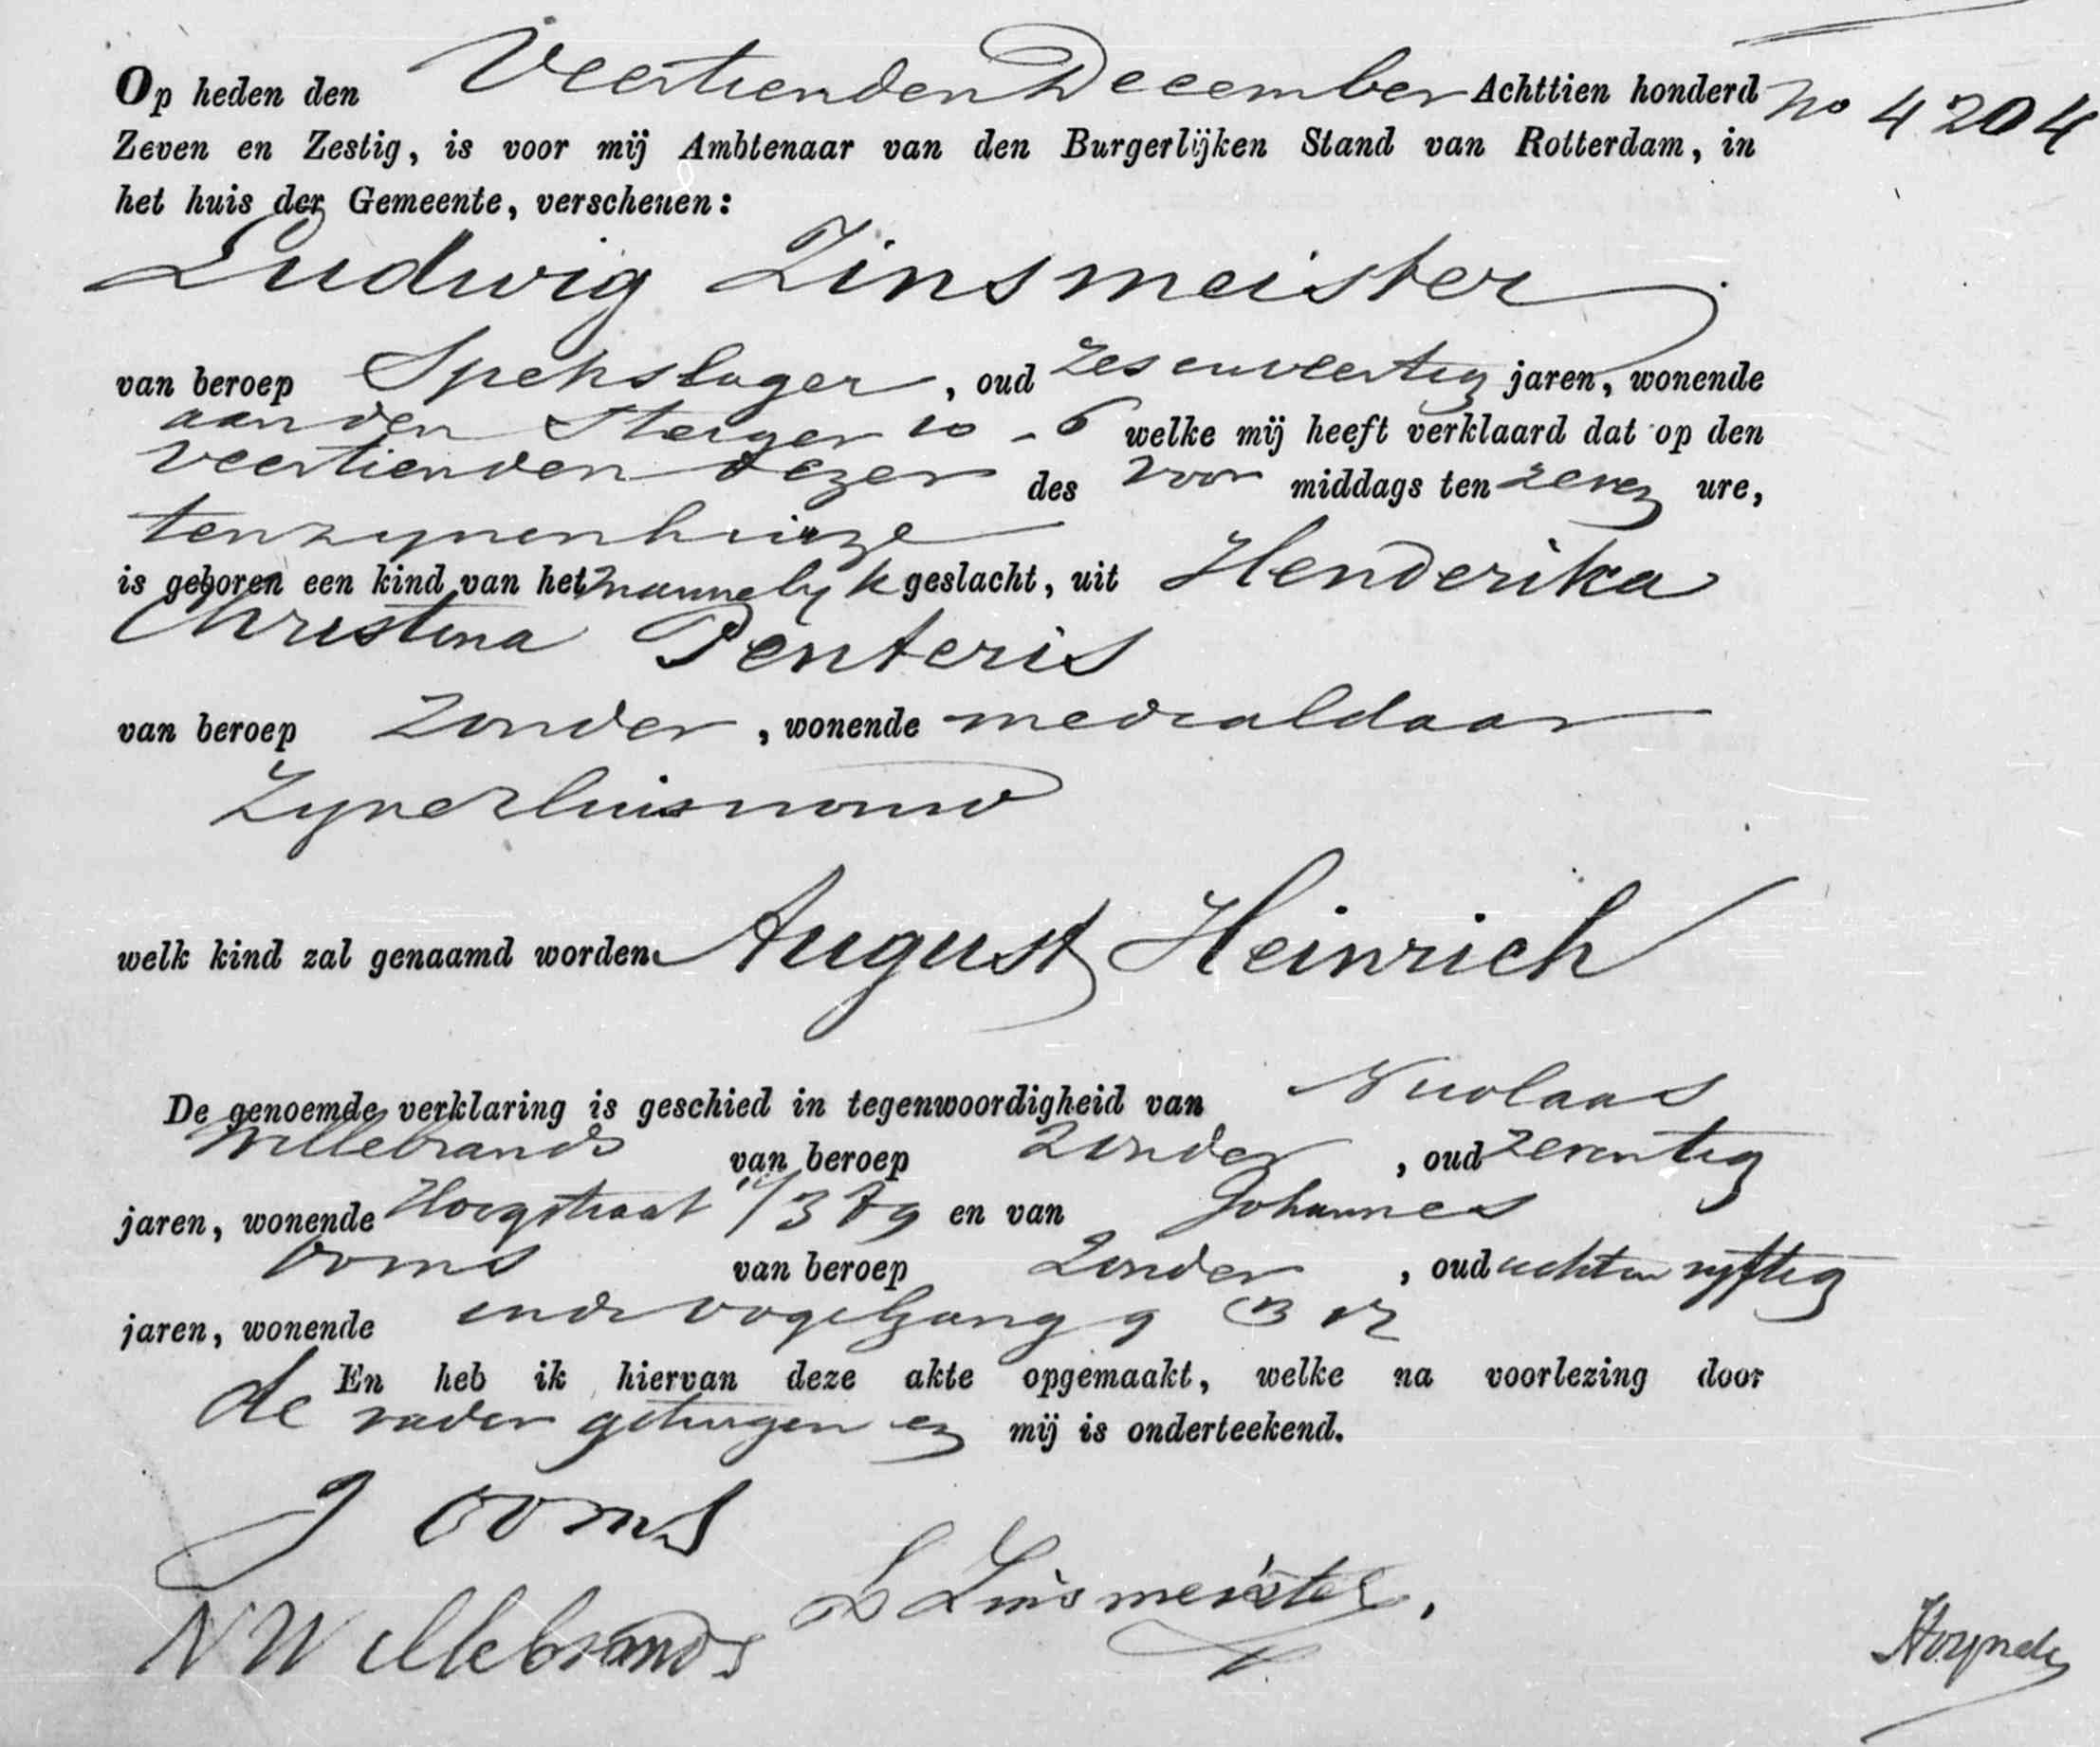 Op heden den Veertienden December Achttien honderd No 4204
Zeven en Zestig, is voor mij Ambtenaar van den Burgerlijken Stand van Rotterdam, in
het huis der Gemeente, verschenen:
Ludwig Zinsmeister
van beroep Spekslager, oud zesenveertig jaren, wonende
aan den Steiger 10-6 welke mij heeft verklaard dat op den
veertienden dezer des voor middags ten zeven ure,
tenzynenhuize
is geboren een kind van het mannelyk geslacht, uit Henderika
Christina Penteris
van beroep Zonder, wonende medealdaar
Zynehuisvrouw
welk kind zal genaamd worden August Heinrich
De genoemde verklaring is geschied in tegenwoordigheid van Nicolaas
Willebrands van beroep Zonder, oud zeventig
jaren, wonende Hoogstraat en van Johannes
Ooms van beroep Zonder, oud achtenvyftig
jaren, wonende inde vogelzang
En heb ik hiervan deze akte opgemaakt, welke na voorlezing door
de vader getuigen en mij is onderteekend.
J Ooms
L Zinsmeister.
N Willebrands